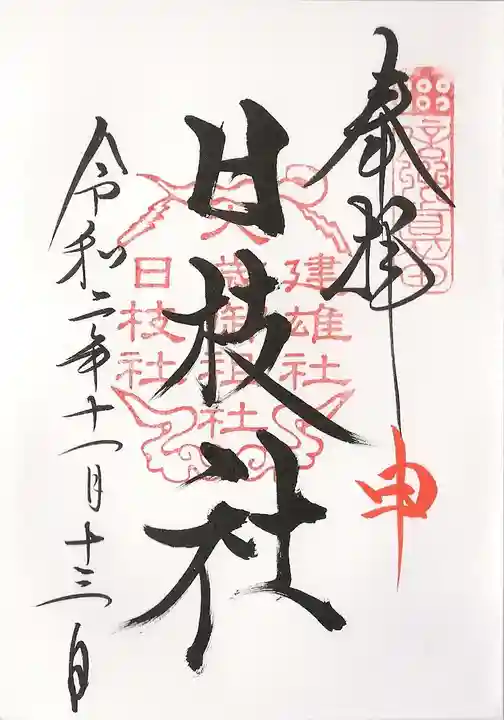 奉拝
申
日枝社
建雄社
歳御祖社
日枝社
令和二年十一月十三日